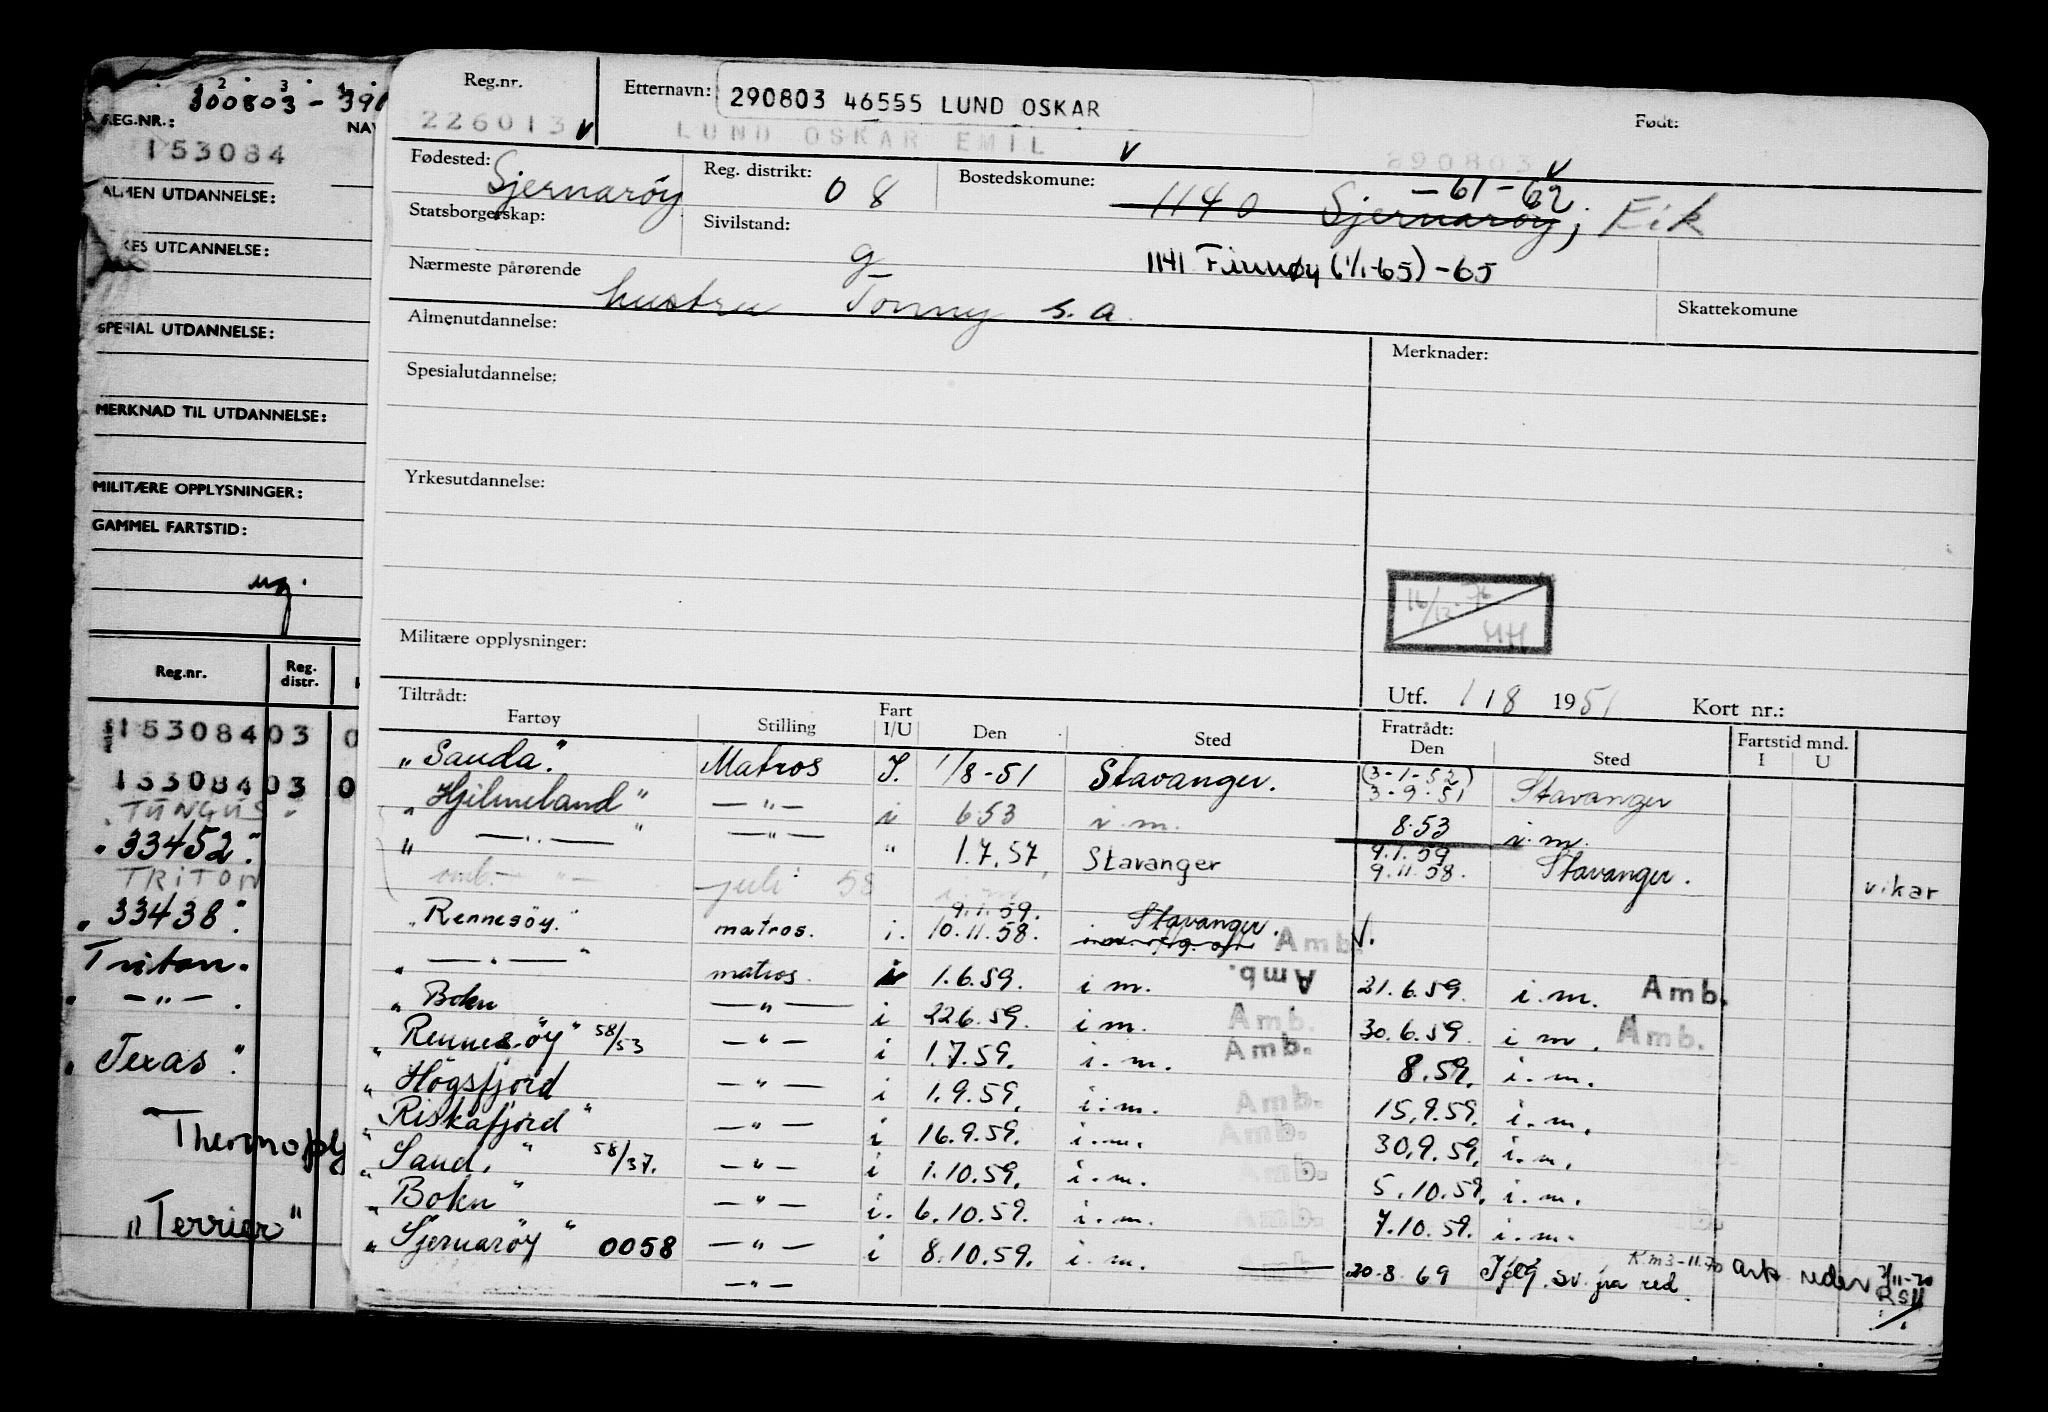 300803-
REG.NR.:
153084
ALMEN UTDANNELSE:
UTDANNELSE:
SPESIAL UTDANNELSE:
MERKNAD TIL UTDANNELSE:
MILITÆRE OPPLYSNINGER:
GAMMEL FARTSTID:
Reg.nr. Reg. distr.
153084 03 0
153084 03 0
TUNGUS
"33452"
TRITON
"33438"
Triton.
" — " — .
"Texas"
Thermopyl
"Terrier"
Reg.nr. Etternavn: 290803 46555 LUND OSKAR Født:
226013 V LUND OSKAR EMIL V 290803 V
Fødested: Sjernarøy Reg. distrikt: 08 Bostedskomune: 1140 Sjernarøy; -61-62 Eik
Statsborgerskap: Sivilstand: g 1141 Finnøy (1/1-65) -65
Nærmeste pårørende hustru Tonny s. a.
Skattekomune
Almenutdannelse: Merknader:
Spesialutdannelse:
Yrkesutdannelse:
16/12-76
HH
Militære opplysninger:
Utf. 1/8 1951 Kort nr.:
Tiltrådt: Fratrådt:
Fartøy Stilling Fart I/U Den Sted Den Sted Fartstid mnd. I U
"Sauda" Matros I. 1/8-51 Stavanger. (3-1-52) 3-9-51 Stavanger
"Hjelmeland" — " — i 6.53 i.m. 8.53 i.m.
" — " — " — " — " 1.7.57, Stavanger 9.1.59 9.11.58. Stavanger. vikar
omb. — " — juli 58 i.m.
"Rennesöy" matros. i. 9.1.59. 10.11.58. Stavanger. Amb V.
" — " — " matros. i 1.6.59. i m. Amb. 21.6.59. i.m. Amb.
"Bokn — " — i 22.6.59. i m. Amb. 30.6.59. i m. Amb.
"Rennesöy" 58/53 — " — i 1.7.59. i.m. Amb. 8.59. i.m.
"Högsfjord — " — i 1.9.59. i.m. Amb. 15.9.59. i.m.
"Riskafjord" — " — i 16.9.59. i.m. Amb. 30.9.59. i.m.
"Sand." 58/37. — " — i 1.10.59. i.m. Amb. 5.10.59. i.m.
"Bokn" — " — i. 6.10.59. i.m. Amb. 7.10.59. i.m.
"Sjernaröy" 0058 — " — i 8.10.59. i.m. Amb 20.8.69 Iflg. sv. fra red. Km3-11.70 Ark reder 3/11-70 RSH
— " —